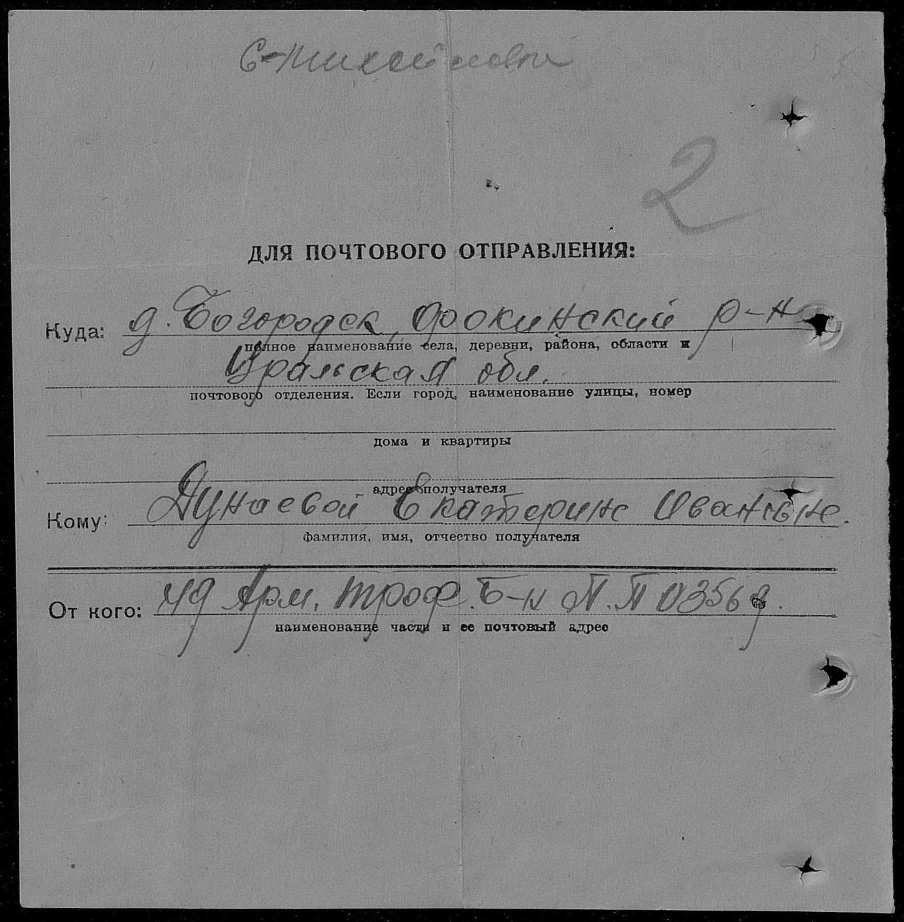 2
ДЛЯ ПОЧТОВОГО ОТПРАВЛЕНИЯ:
Куда: д. Богородск, Фокинский р-н
полное наименование села, деревни, района, области и
Уральская обл.
почтового отделения. Если город, наименование улицы, номер
дома и квартиры
адрес получателя
Кому: Дунаевой Екатерине Ивановне.
фамилия, имя, отчество получателя
От кого: 49 Арм. троф. б-н П.П 03569.
наименование части и ее почтовый адрес